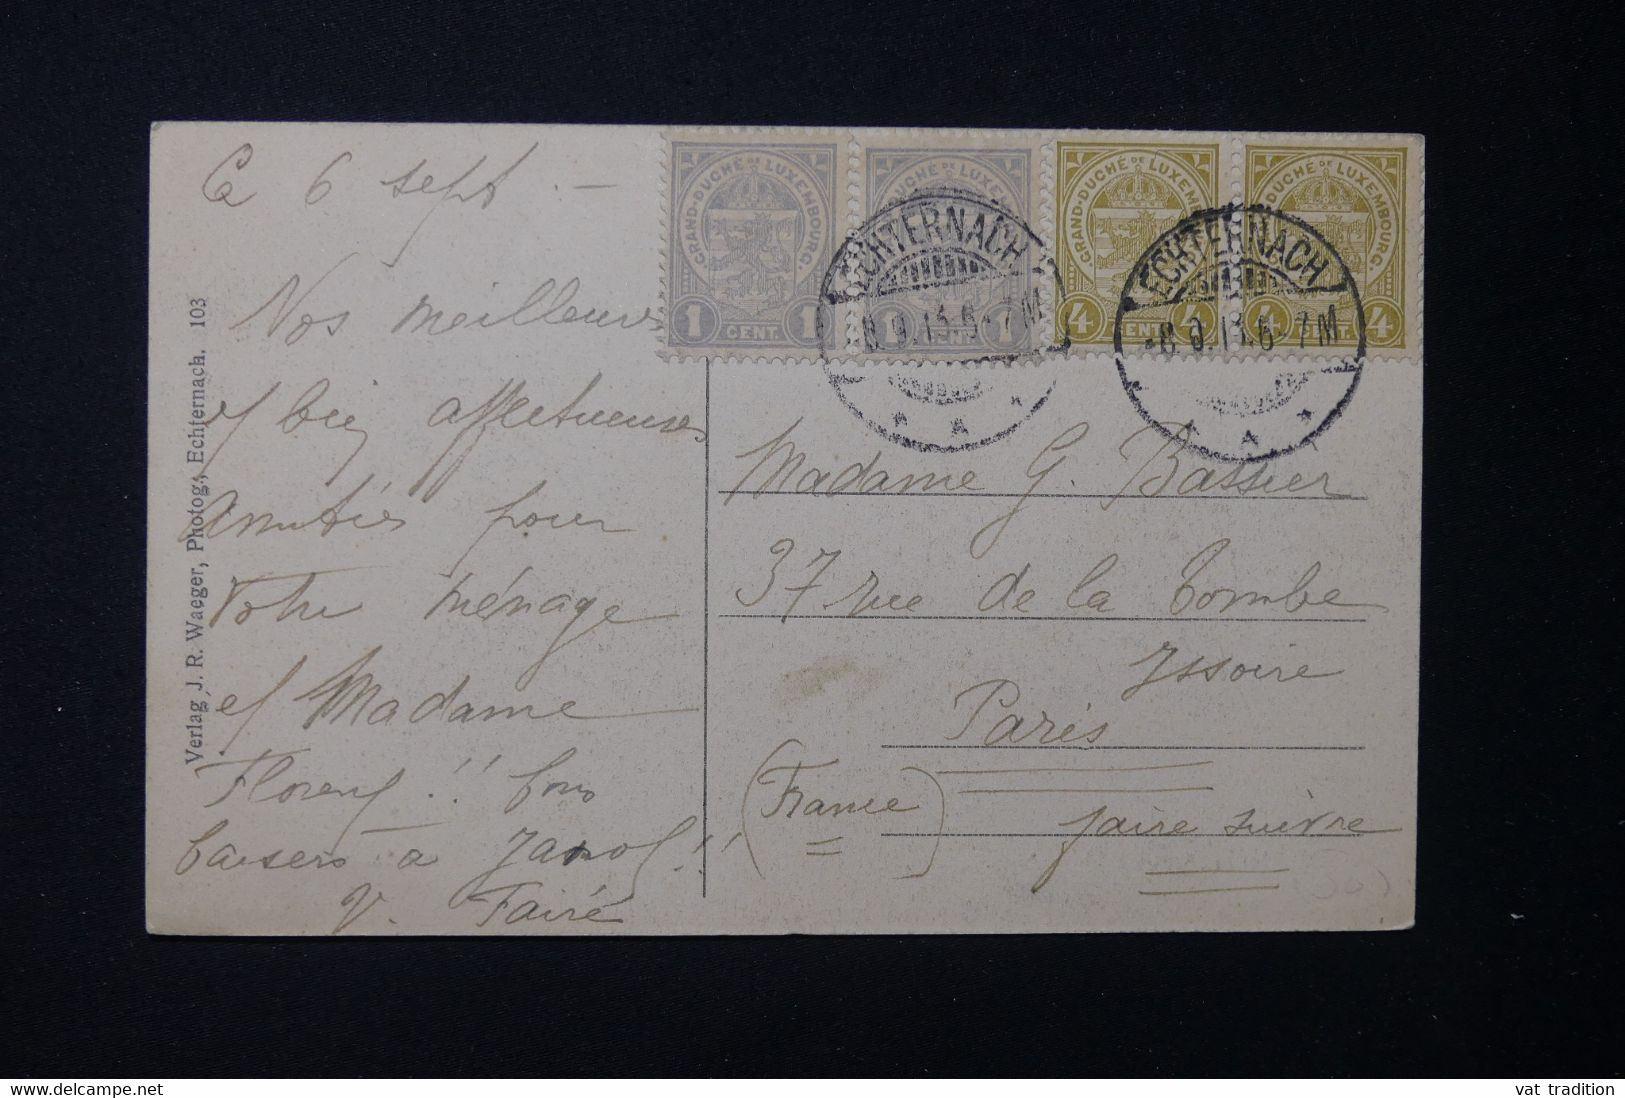 Ce 6 sept. —
Nos meilleures
et bien affectueuses
Amitiés pour
Votre ménage
et Madame
Florent !! bons
baisers à !!
V. Fairé
Verlag J. R. Waeger, Photog., Echternach. 103
GRAND-DUCHÉ DE LUXEMBOURG.
1 CENT. 1
GRAND-DUCHÉ DE LUXEMBOURG.
1 CENT. 1
GRAND-DUCHÉ DE LUXEMBOURG.
4 CENT. 4
GRAND-DUCHÉ DE LUXEMBOURG.
4 CENT. 4
ECHTERNACH
8.9.13.6-7M
ECHTERNACH
-8.9.13.6-7M
Madame G. Bassier
37 rue de la Tombe
Issoire
Paris
(France)
faire suivre
vat tradition